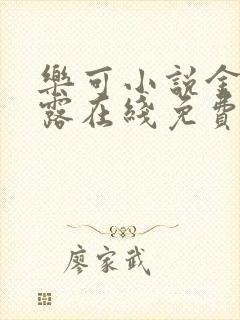 樂可小說金
露在綫免費
廖家武